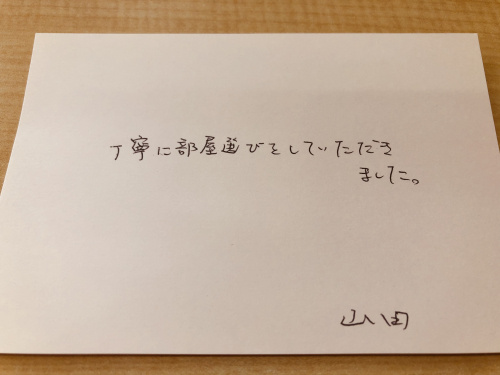 丁寧に部屋選びをしていただき
ました。
山田